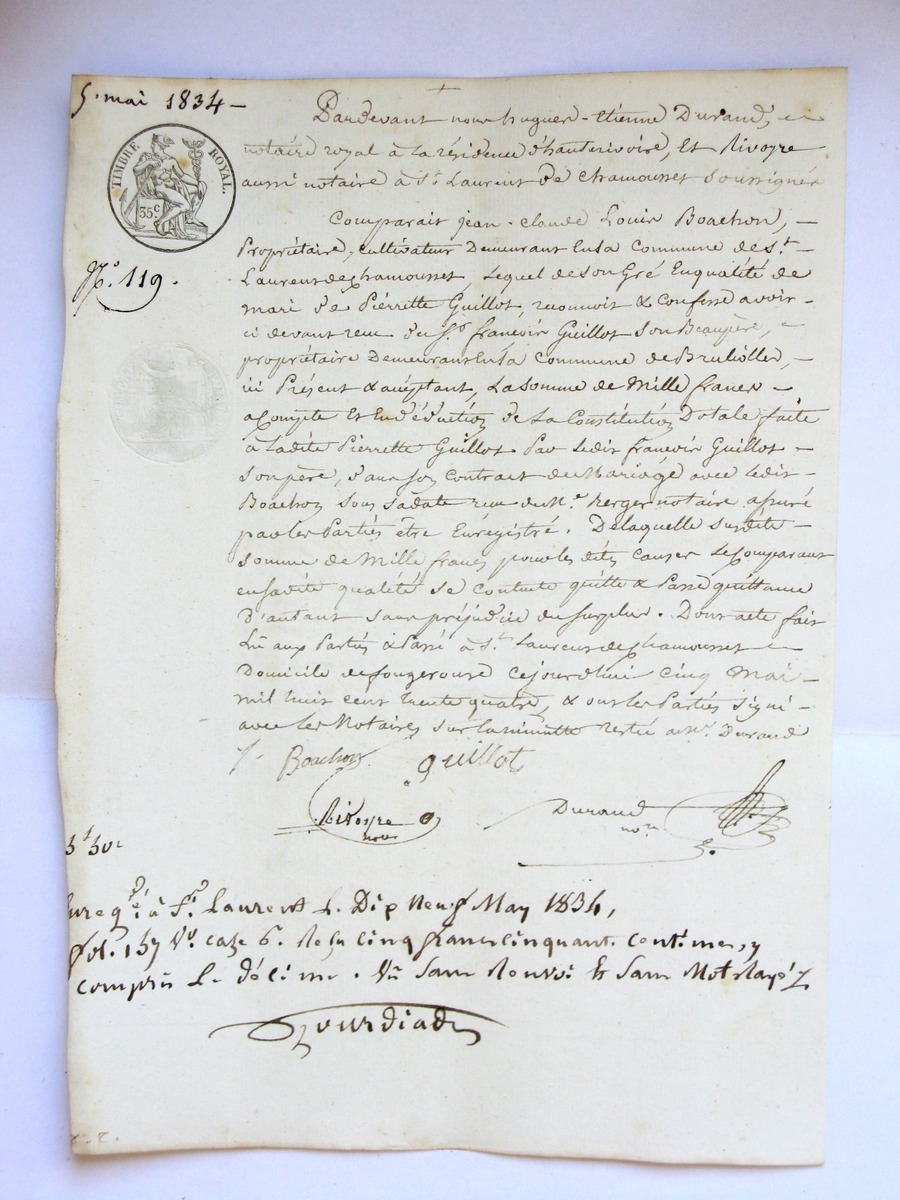 5. mai 1834 -
TIMBRE ROYAL.
35 c
N.o 119.
Pardevant nous hugues-Etienne Durand,
notaire royal à la résidence d'hauterivoire, Et Rivoyre
aussi notaire à St. Laurent de Chamousset soussignés
Comparait jean-claude Louis Boachon, -
Propriétaire, cultivateur Demeurant En la Commune de St. -
Laurent de chamousset, lequel de son Gré En qualité de
mari de Pierrette Guillot, reconnoit & confesse avoir -
ci devant reçu du Sr. françois Guillot son Beaupère, -
propriétaire Demeurant En la Commune de Brulioller, -
ici Présent & acceptant, La somme de Mille francs -
a Compte Et En déduction de La Constitution Dotale faite
à Ladite Pierrette Guillot Par ledit françois Guillot -
son père, dans son Contract de Mariage avec ledit -
Boachon sous sa date reçu de Me. Berger notaire assuré
par les Parties être Enregistré. De laquelle susdite -
somme de Mille francs pour les dites causes le Comparant
en sa dite qualité se contente quitte & Passe quittance
d'autant sans préjudice du surplus. Dont acte fait
Lu aux Parties & Passé à St. Laurent de chamousset -
Domicile de fougerouse cejourdhui cinq Mai -
mil huit cent trente quatre, & ont les Parties signé -
avec les Notaires sur la minutte restée a Me. Durand
Boachon guillot
Rivoyre
Durand
nore
5f 50c
Enregé. à St. Laurent L. Dix Neuf May 1834,
fol. 157 Vo. case 6. Reçu cinq francs cinquante centimes, y
compris Le décime. Vu Sans Renvoi Et Sans Mot Rayé